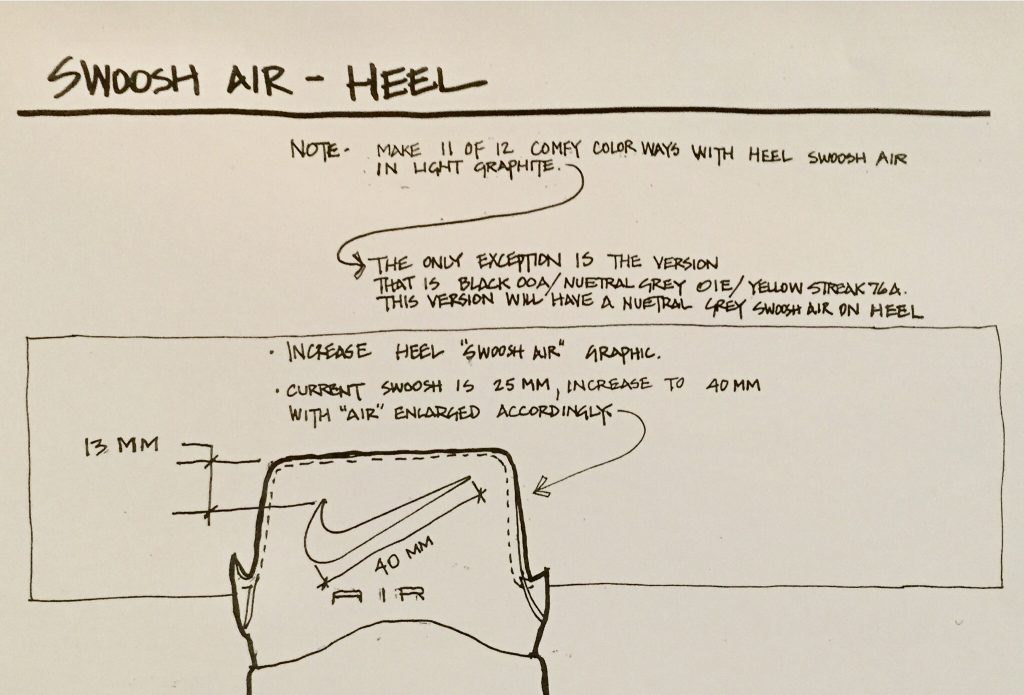 SWOOSH AIR - HEEL
NOTE- MAKE 11 OF 12 COMFY COLOR WAYS WITH HEEL SWOOSH AIR
IN LIGHT GRAPHITE.
THE ONLY EXCEPTION IS THE VERSION
THAT IS BLACK 00A/NUETRAL GREY 01E/YELLOW STREAK 76A.
THIS VERSION WILL HAVE A NUETRAL GREY SWOOSH AIR ON HEEL
· INCREASE HEEL "SWOOSH AIR" GRAPHIC.
· CURRENT SWOOSH IS 25 MM, INCREASE TO 40 MM
WITH "AIR" ENLARGED ACCORDINGLY.
13 MM
40 MM
AIR